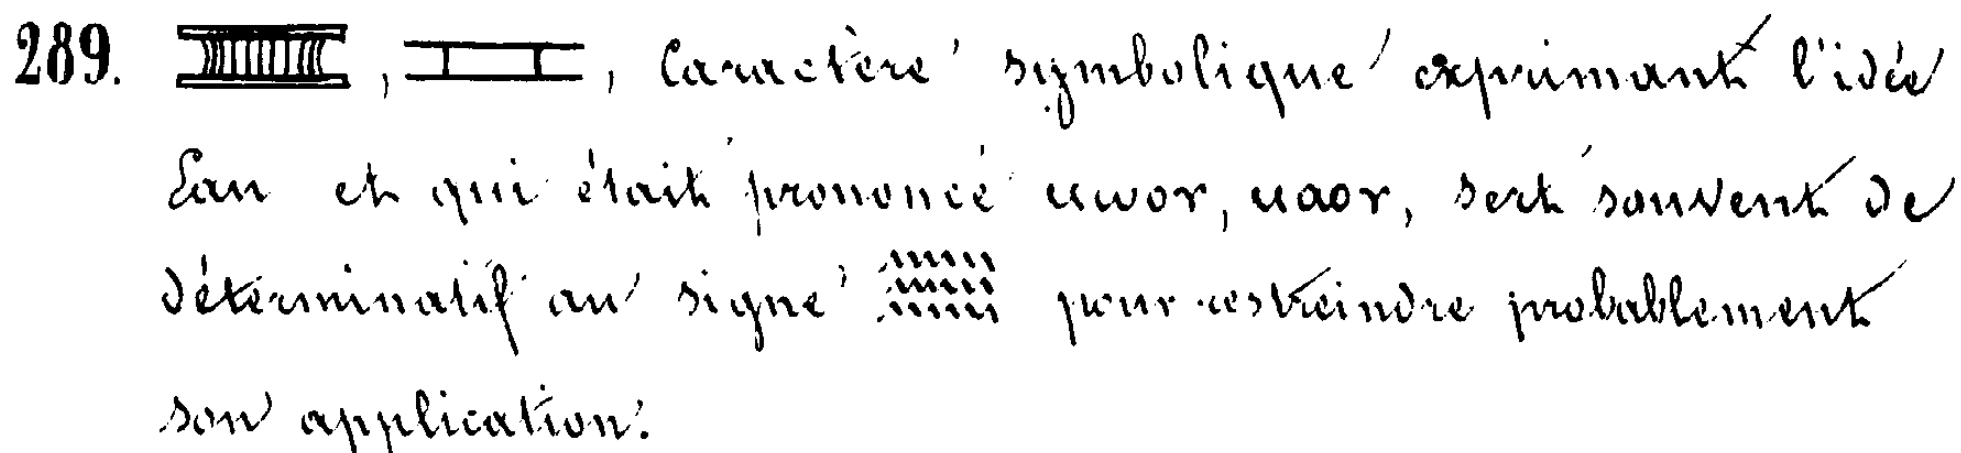 289. , , Caractère symbolique exprimant l'idée
Eau et qui était prononcé ⲙⲱⲟⲩ, ⲙⲁⲟⲩ, sert souvent de
déterminatif au signe pour restreindre probablement
son application.